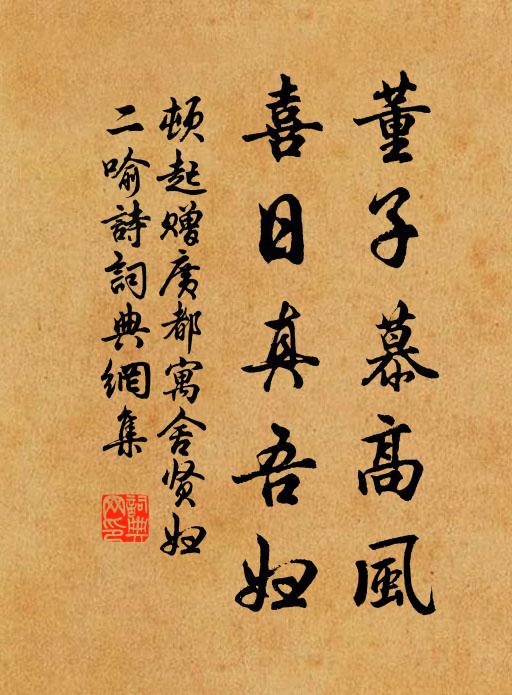 董子慕高風
喜日真吾妇
頓起赠廣都寓舍贤妇
二喻詩詞典網集
詞典網印